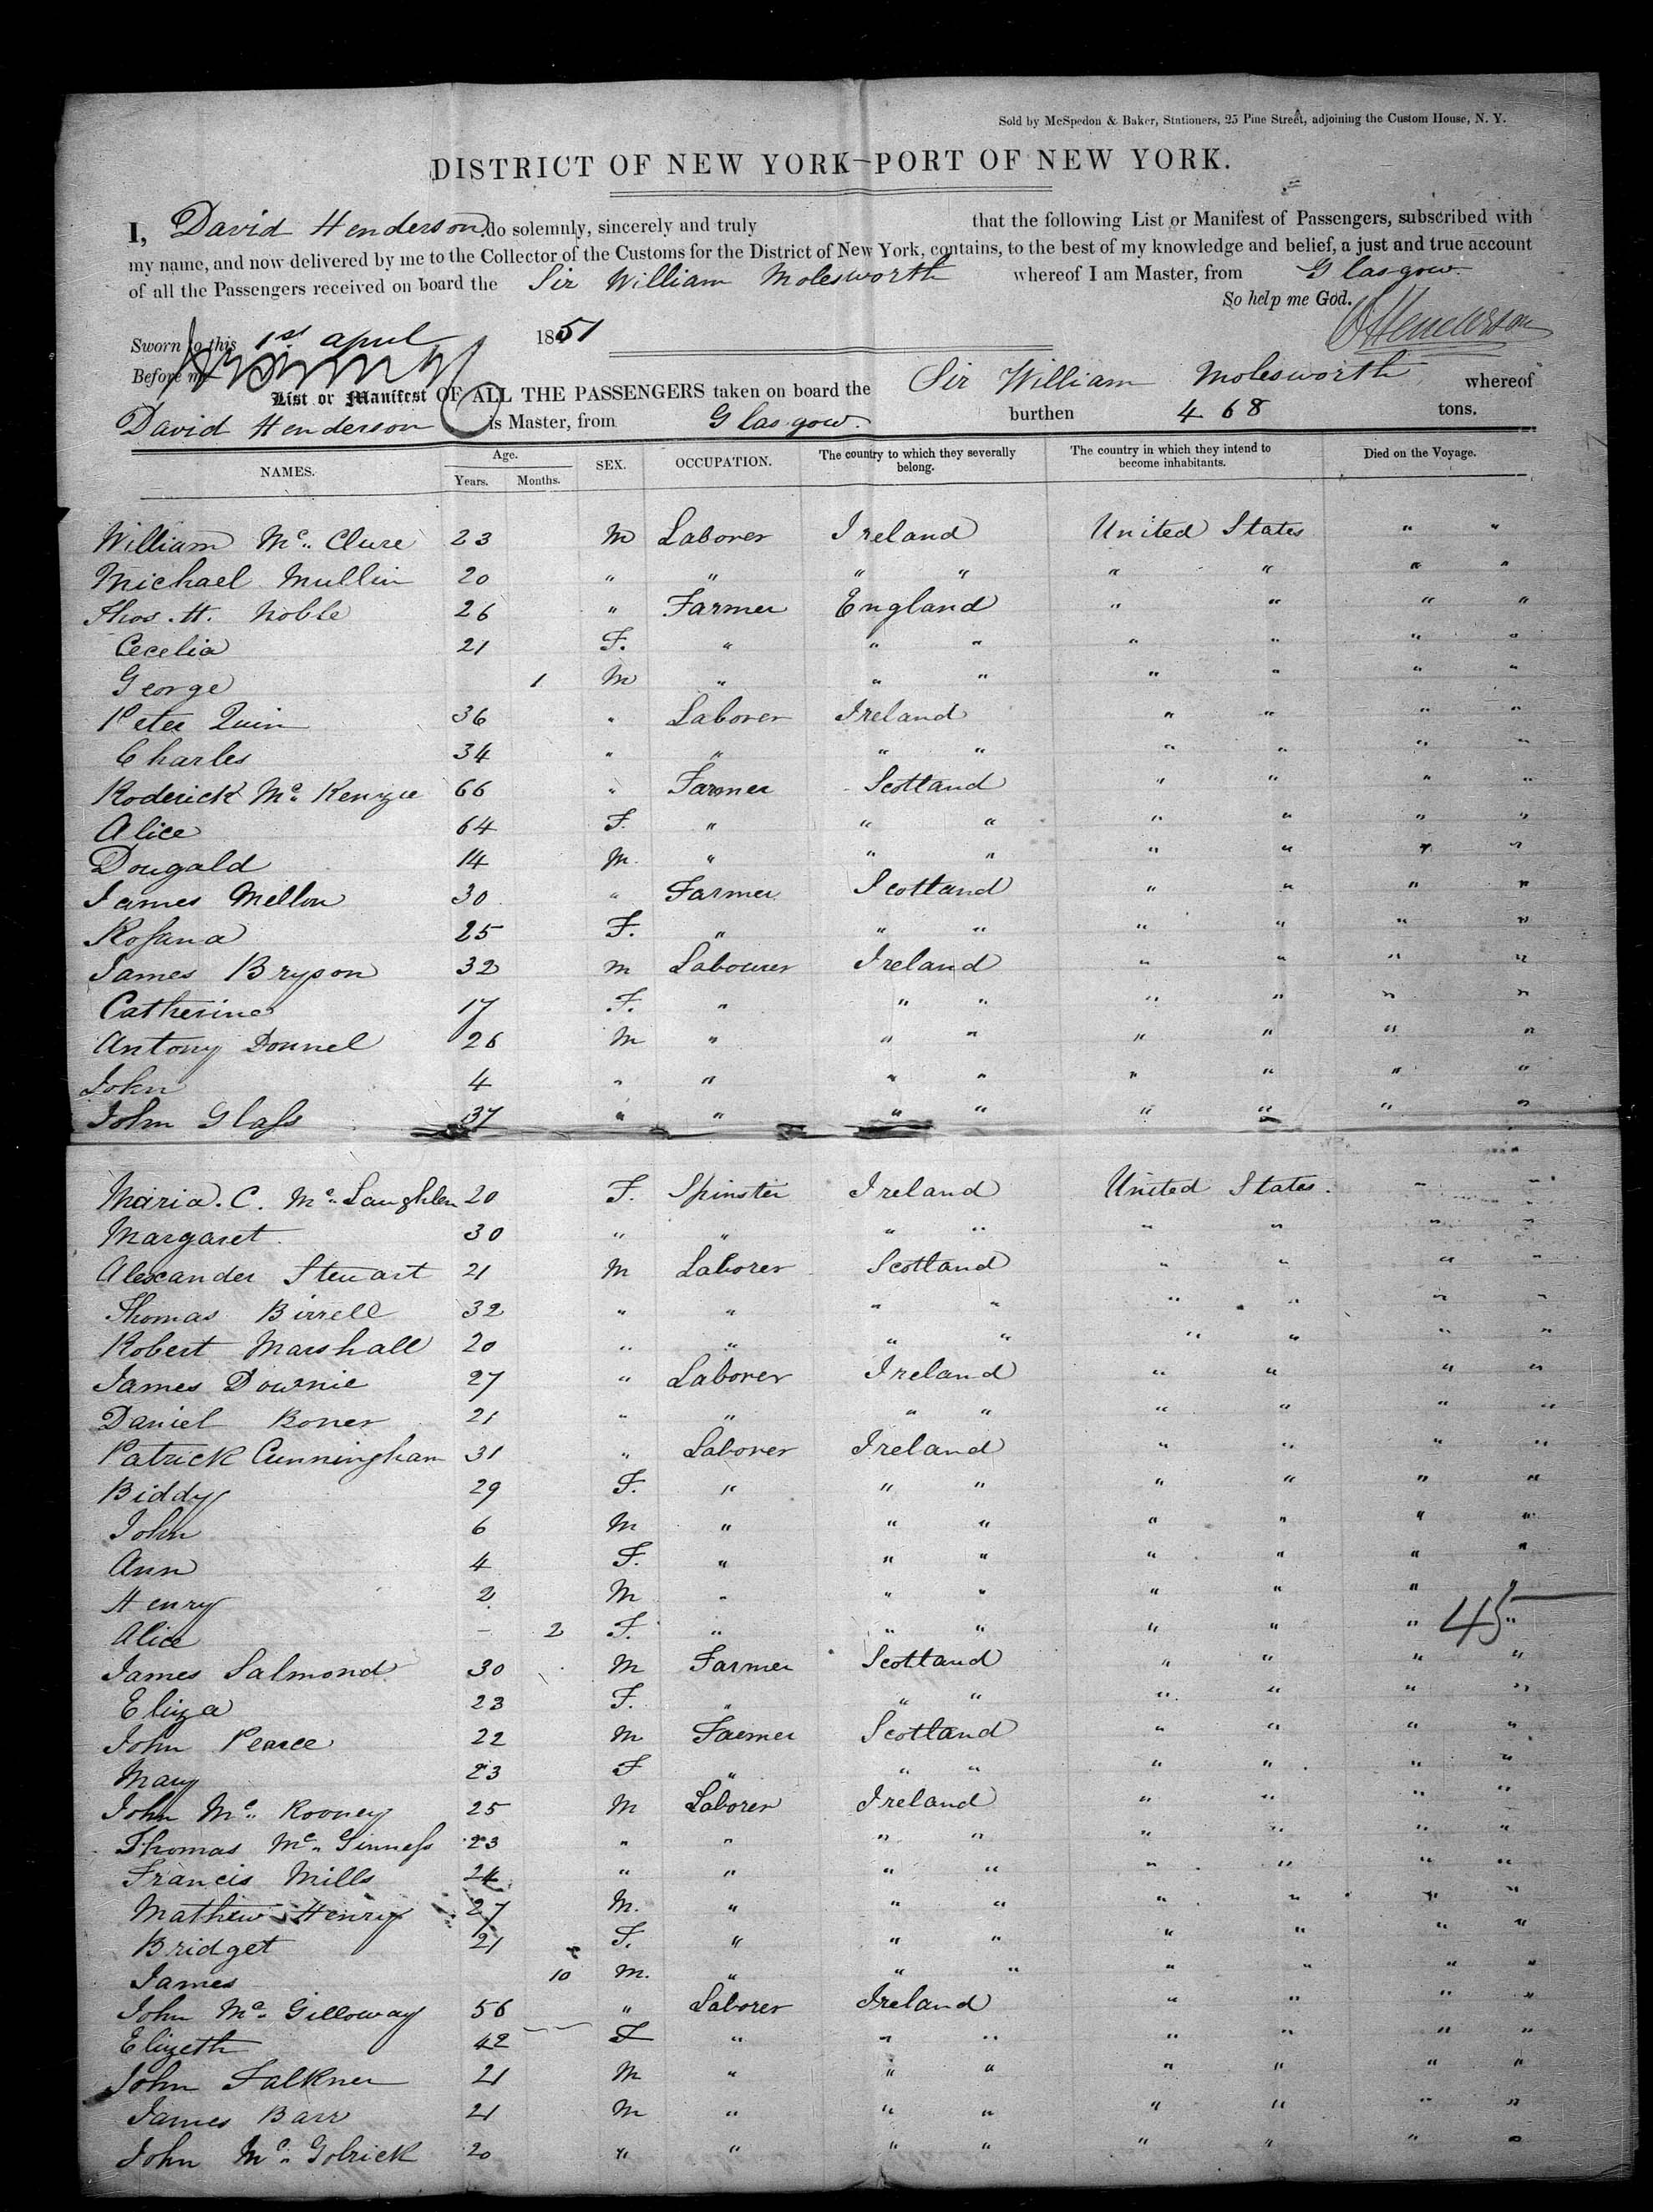 Sold by McSpedon & Baker, Stationers, 25 Pine Street, adjoining the Custom House, N. Y.
DISTRICT OF NEW YORK—PORT OF NEW YORK.
I, David Henderson do solemnly, sincerely and truly that the following List or Manifest of Passengers, subscribed with
my name, and now delivered by me to the Collector of the Customs for the District of New York, contains, to the best of my knowledge and belief, a just and true account
of all the Passengers received on board the Sir William Molesworth whereof I am Master, from Glasgow.
So help me God.
Sworn to this 1st april 1851 D Henderson
Before me
List or Manifest OF ALL THE PASSENGERS taken on board the Sir William Molesworth whereof
David Henderson is Master, from Glasgow. burthen 468 tons.
NAMES. Age. Years. Months. SEX. OCCUPATION. The country to which they severally belong. The country in which they intend to become inhabitants. Died on the Voyage.
William Mc Clure 23 M Laborer Ireland United States " "
Michael Mullin 20 " " " " " " " "
Thos. H. Noble 26 " Farmer England " " " "
Cecelia 21 F. " " " " " " "
George 1 M " " " " " " "
Peter Quin 36 " Laborer Ireland " " " "
Charles 34 " " " " " " " "
Roderick Mc Kenzie 66 " Farmer Scotland " " " "
Alice 64 F. " " " " " " "
Dougald 14 M. " " " " " " "
James Mellon 30 " Farmer Scotland " " " "
Rosana 25 F. " " " " " " "
James Bryson 32 M Labourer Ireland " " " "
Catherine 17 F. " " " " " " "
Antony Donnel 26 M " " " " " " "
John 4 " " " " " " " "
John Glass 37 " " " " " " " "
Maria. C. Mc Laughlen 20 F. Spinster Ireland United States. " "
Margaret 30 " " " " " " " "
Alexander Stewart 21 M Laborer Scotland " " " "
Thomas Birrell 32 " " " " " " " "
Robert Marshall 20 " " " " " " " "
James Downie 27 " Laborer Ireland " " " "
Daniel Boner 21 " " " " " " " "
Patrick Cunningham 31 " Laborer Ireland " " " "
Biddy 29 F. " " " " " " "
John 6 M " " " " " " "
Ann 4 F. " " " " " " "
Henry 2 M " " " " " " "
Alice – 2 F. " " " " " " 45 "
James Salmond 30 M Farmer Scotland " " " "
Eliza 23 F. " " " " " " "
John Pearce 22 M Farmer Scotland " " " "
Mary 23 F " " " " " " "
John Mc Rooney 25 M Laborer Ireland " " " "
Thomas Mc Ginness 23 " " " " " " " "
Francis Mills 24 " " " " " " " "
Mathew Henry 27 M. " " " " " " "
Bridget 21 F. " " " " " " "
James 10 M. " " " " " " "
John Mc Gilloway 56 " Laborer Ireland " " " "
Elizeth 42 F " " " " " " "
John Falkner 21 M " " " " " " "
James Barr 21 M " " " " " " "
John Mc Golrick 20 " " " " " " " "